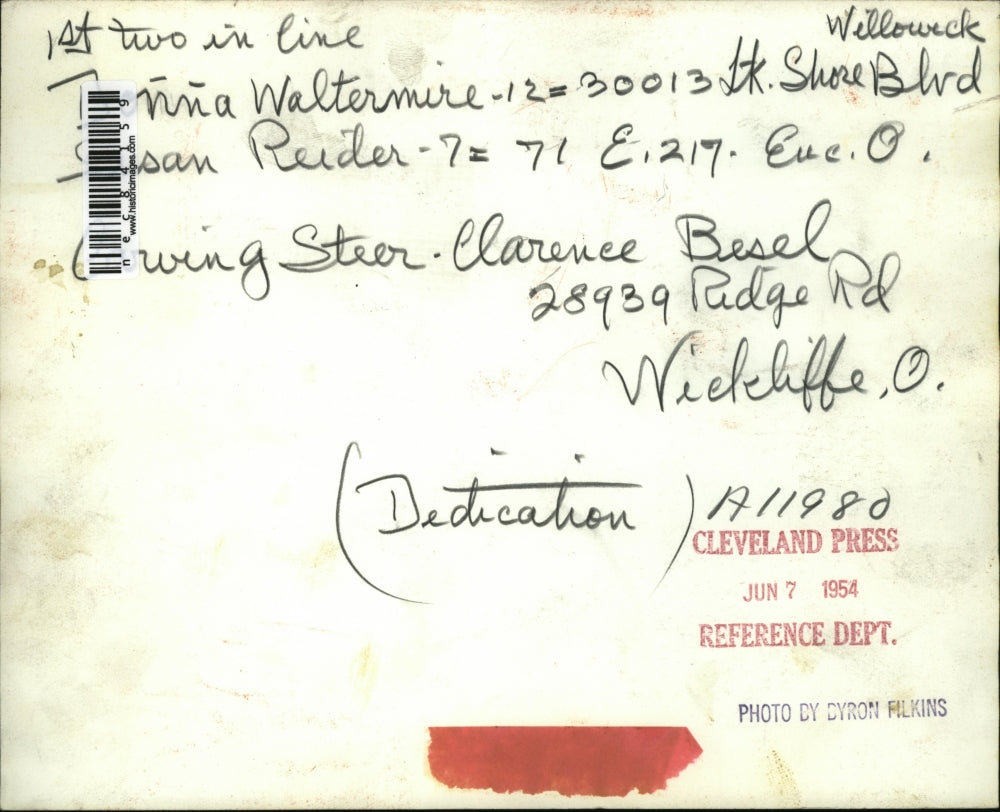 1st two in line
Willowick
nna Waltermire - 12 = 30013 Lk. Shore Blvd
san Reider - 7 = 71 E. 217. Euc. O.
rving Steer - Clarence Besel
28939 Ridge Rd
Wickliffe, O.
(Dedication)
A11980
CLEVELAND PRESS
JUN 7 1954
REFERENCE DEPT.
PHOTO BY BYRON FILKINS
nec84159
www.historicimages.com